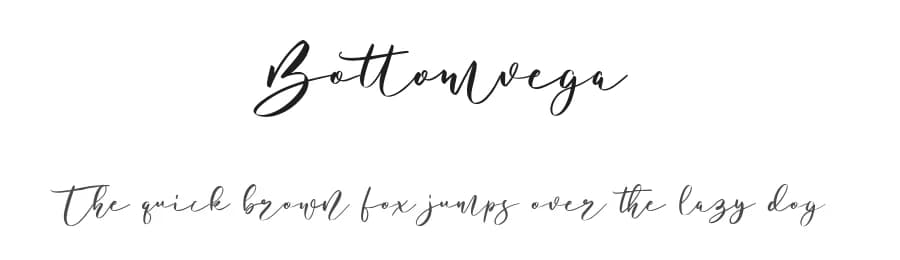 Bottomvega
The quick brown fox jumps over the lazy dog